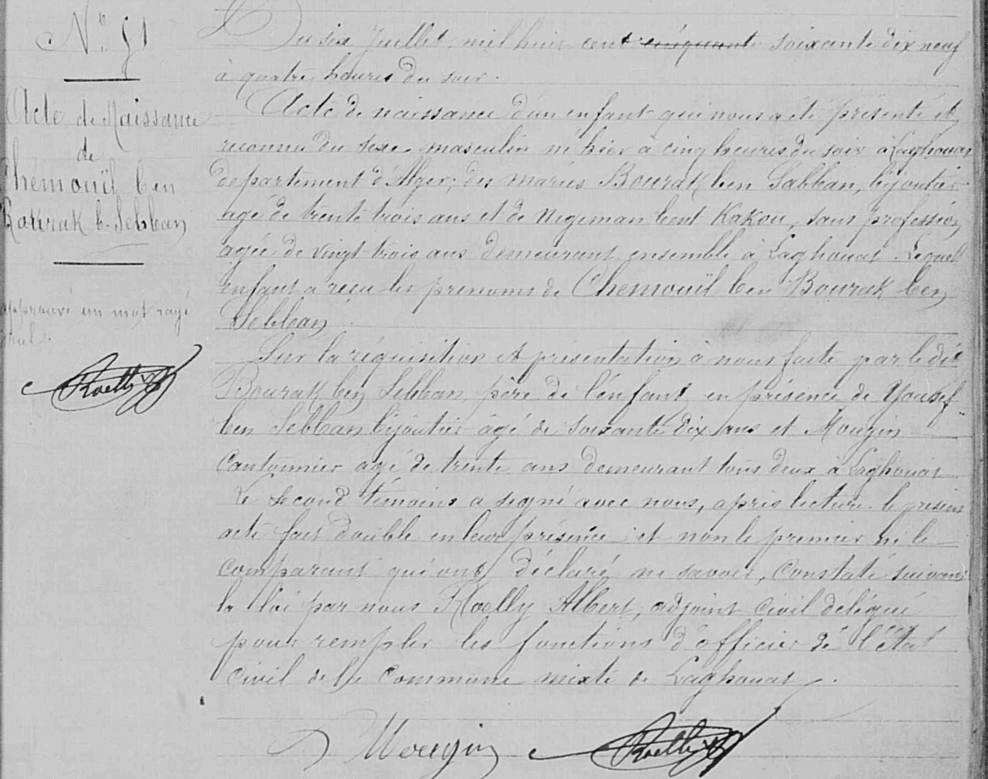 N° 51
Acte de Naissance
de
Chemouïl ben
Bourak b. Sebban
approuvé un mot rayé
nul.
Roelly
Du six Juillet mil huit cent cinquante soixante dix neuf
à quatre heures du soir.
Acte de naissance d'un enfant qui nous a été présenté et
reconnu du sexe masculin né hier à cinq heures du soir à Laghouat
département d'Alger; des mariés Bourak ben Sabban, bijoutier
agé de trente trois ans et de Negeman bent Kakou, sans profession
agée de vingt trois ans demeurant ensemble à Laghouat. Lequel
enfant a reçu les prenoms de Chemouïl ben Bourak ben
Sebban.
Sur la réquisition et présentation à nous faite par le dit
Bourak ben Sebban, père de l'enfant en présence de Yousef
ben Sebban bijoutier âgé de soixante dix ans et Mougin
Cantonnier agé de trente ans demeurant tous deux à Laghouat
Le second témoins a signé avec nous, après lecture le présent
acte fait double en leur présence et non le premier ni le
comparant qui ont déclaré ne savoir, Constaté suivant
la loi par nous Roelly Albert, adjoint civil délégué
pour remplir les fonctions d'officier de l'état
Civil de la Commune mixte de Laghouat.
Mougin Roelly